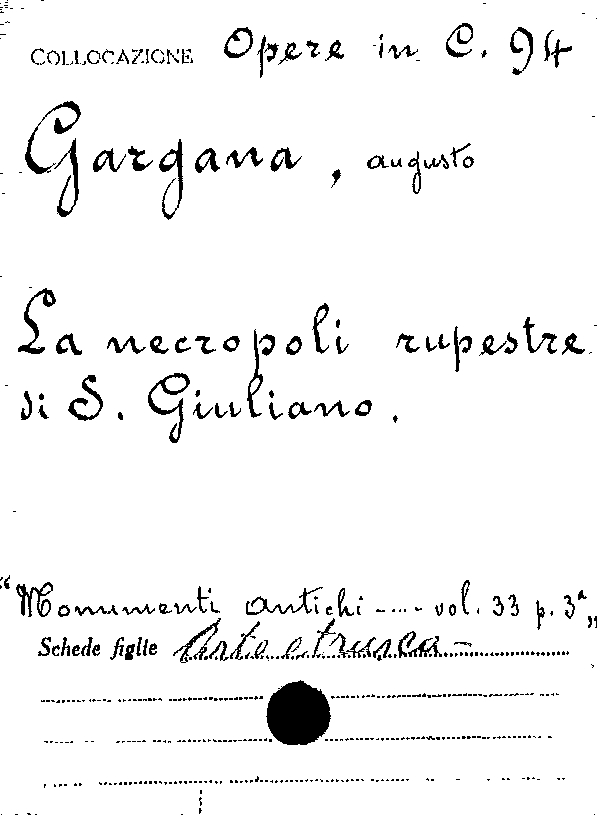 COLLOCAZIONE Opere in C. 94
Gargana, augusto
La necropoli rupestre
di S. Giuliano.
"Monumenti antichi -...- vol. 33 p. 3ª„
Schede figlie Arte etrusca -